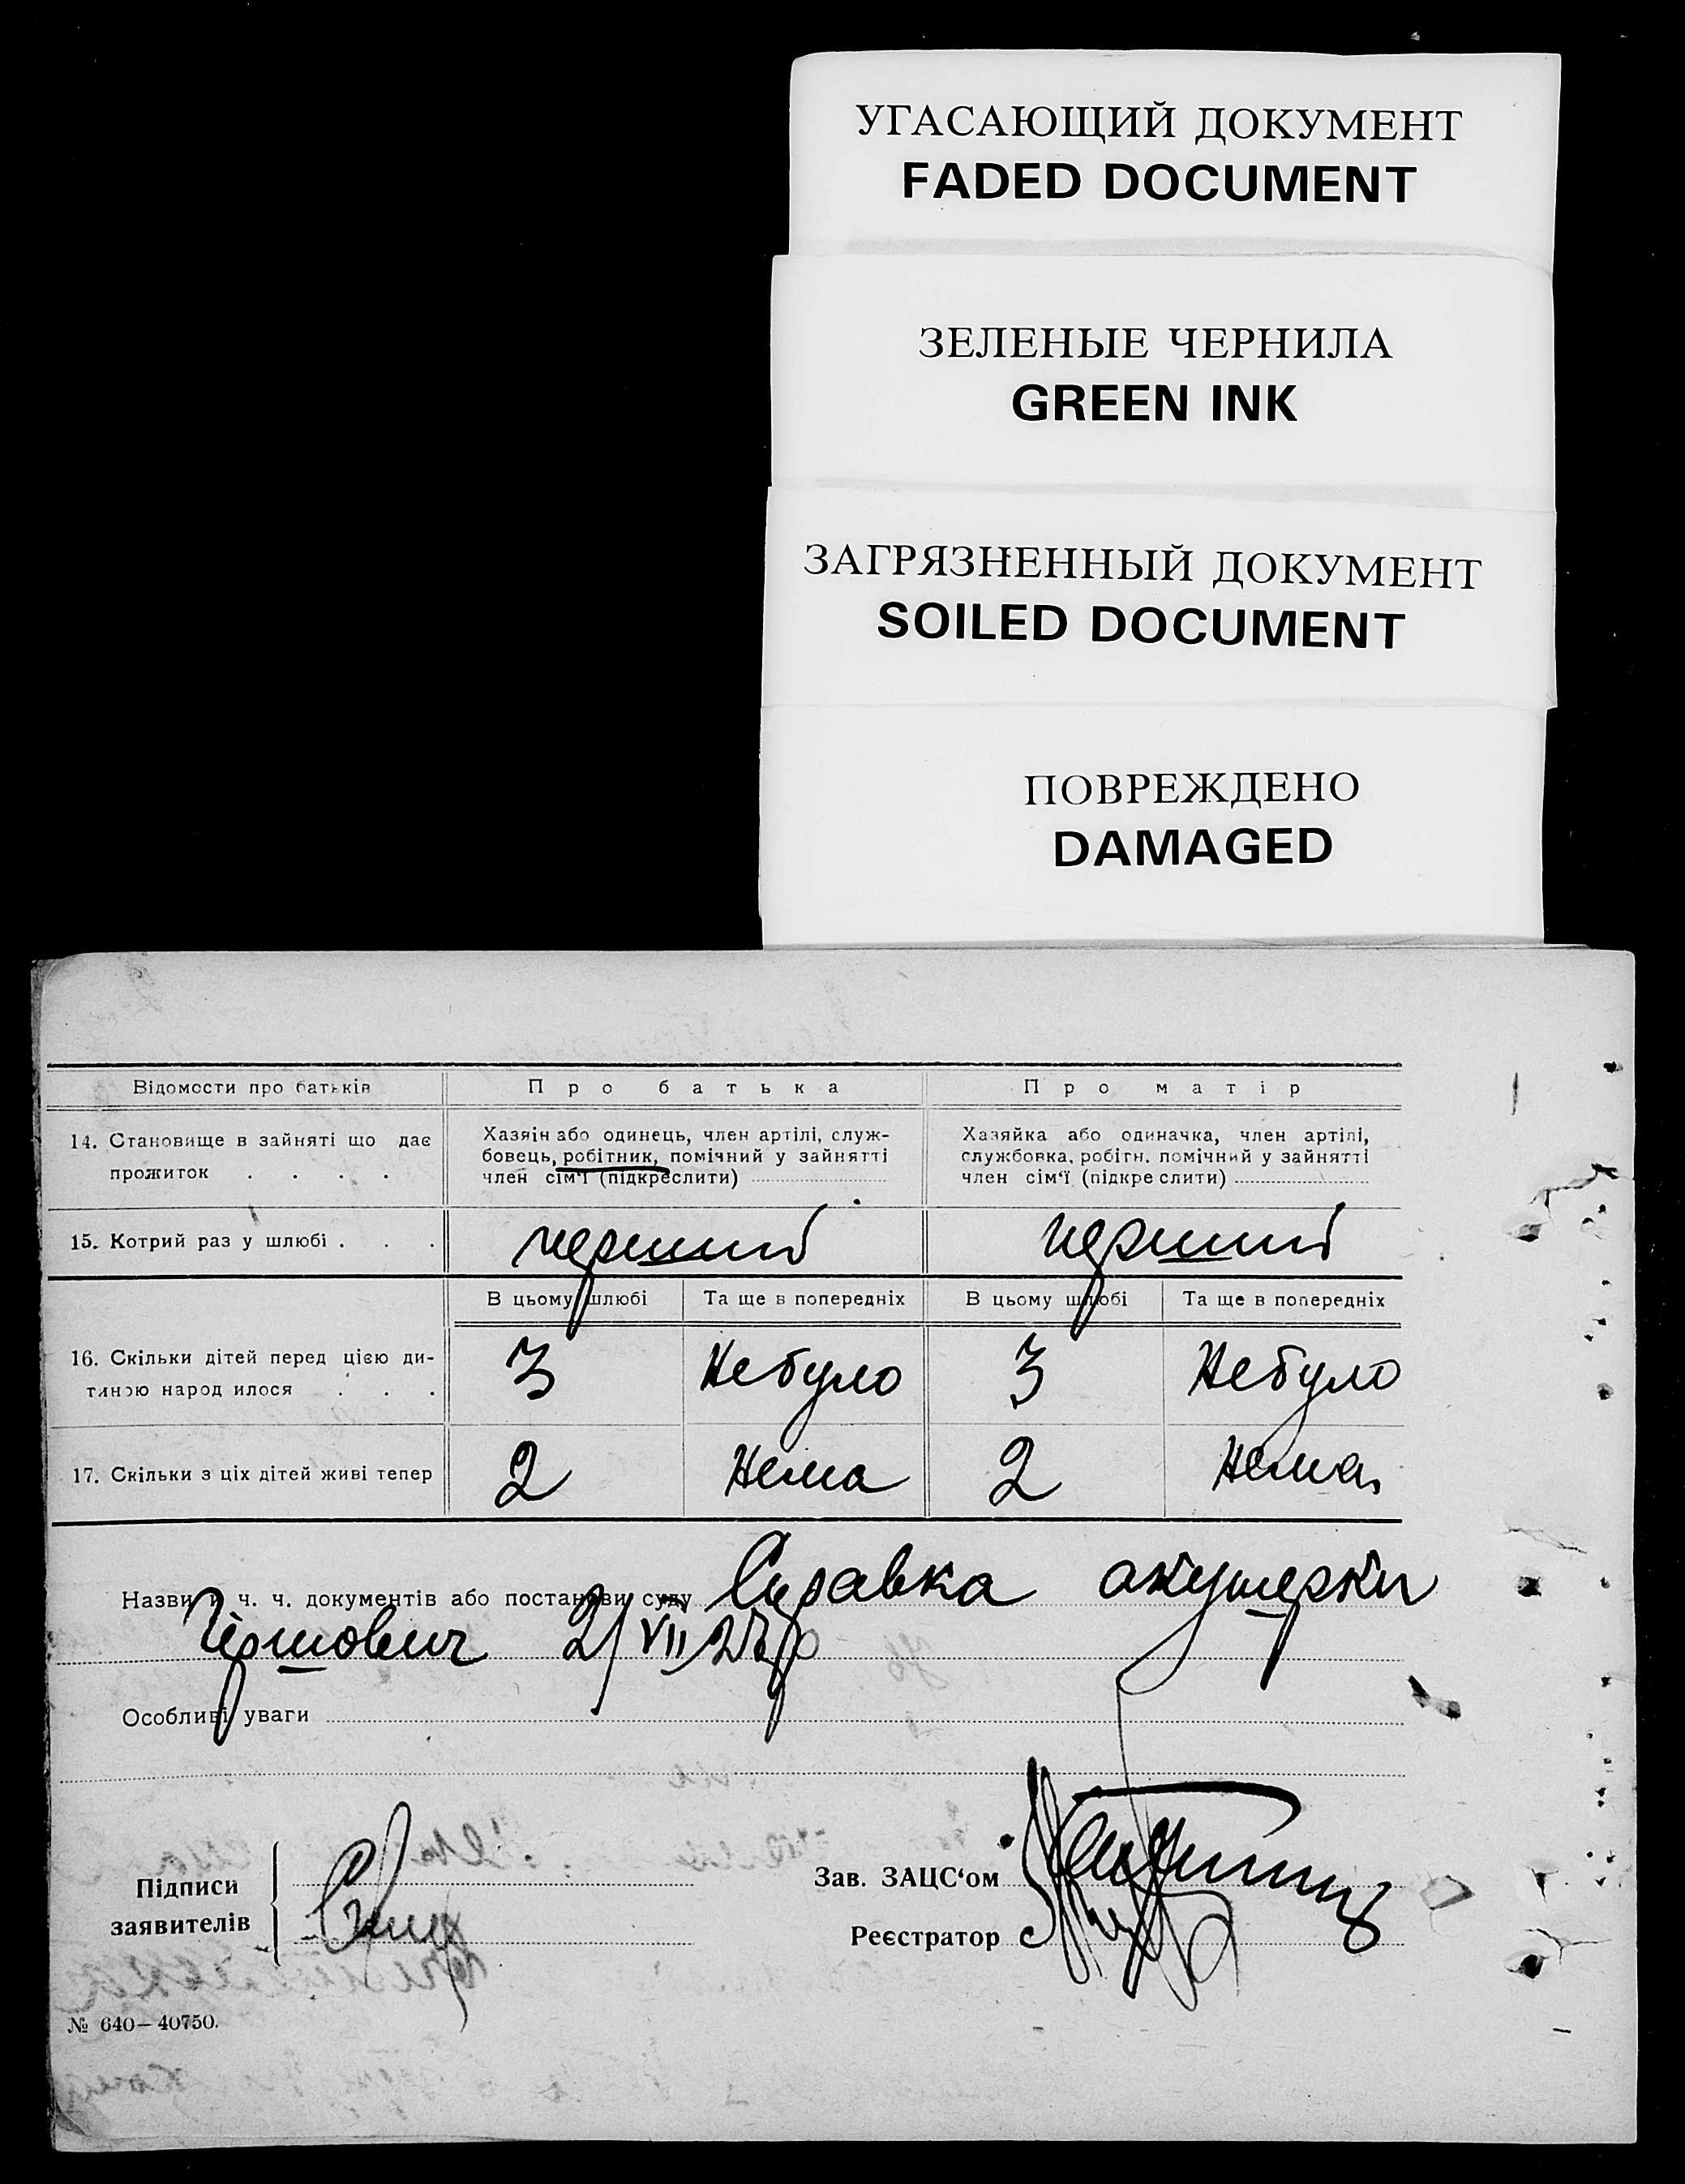 УГАСАЮЩИЙ ДОКУМЕНТ
FADED DOCUMENT
ЗЕЛЕНЫЕ ЧЕРНИЛА
GREEN INK
ЗАГРЯЗНЕННЫЙ ДОКУМЕНТ
SOILED DOCUMENT
ПОВРЕЖДЕНО
DAMAGED
Відомости про батьків
Про батька
Про матір
14. Становище в зайняті що дає
прожиток . . . .
Хазяін або одинець, член артілі, служ-
бовець, робітник, помічний у зайнятті
член сім'ї (підкреслити)
Хазяйка або одиначка, член артілі,
службовка, робітн. помічний у зайнятті
член сім'ї (підкре слити)
15. Котрий раз у шлюбі . . .
перший
перший
В цьому шлюбі
Та ще в попередніх
В цьому шлюбі
Та ще в попередніх
16. Скільки дітей перед цією ди-
тиною народ илося . . .
3
Небуло
3
Небуло
17. Скільки з ціх дітей живі тепер
2
Нема
2
Нема
Назви й ч. ч. документів або постанови суду Справка акушерки
2/VII
Особливі уваги
Підписи
заявителів
Зав. ЗАЦС'ом
Реєстратор
№ 640—40750.